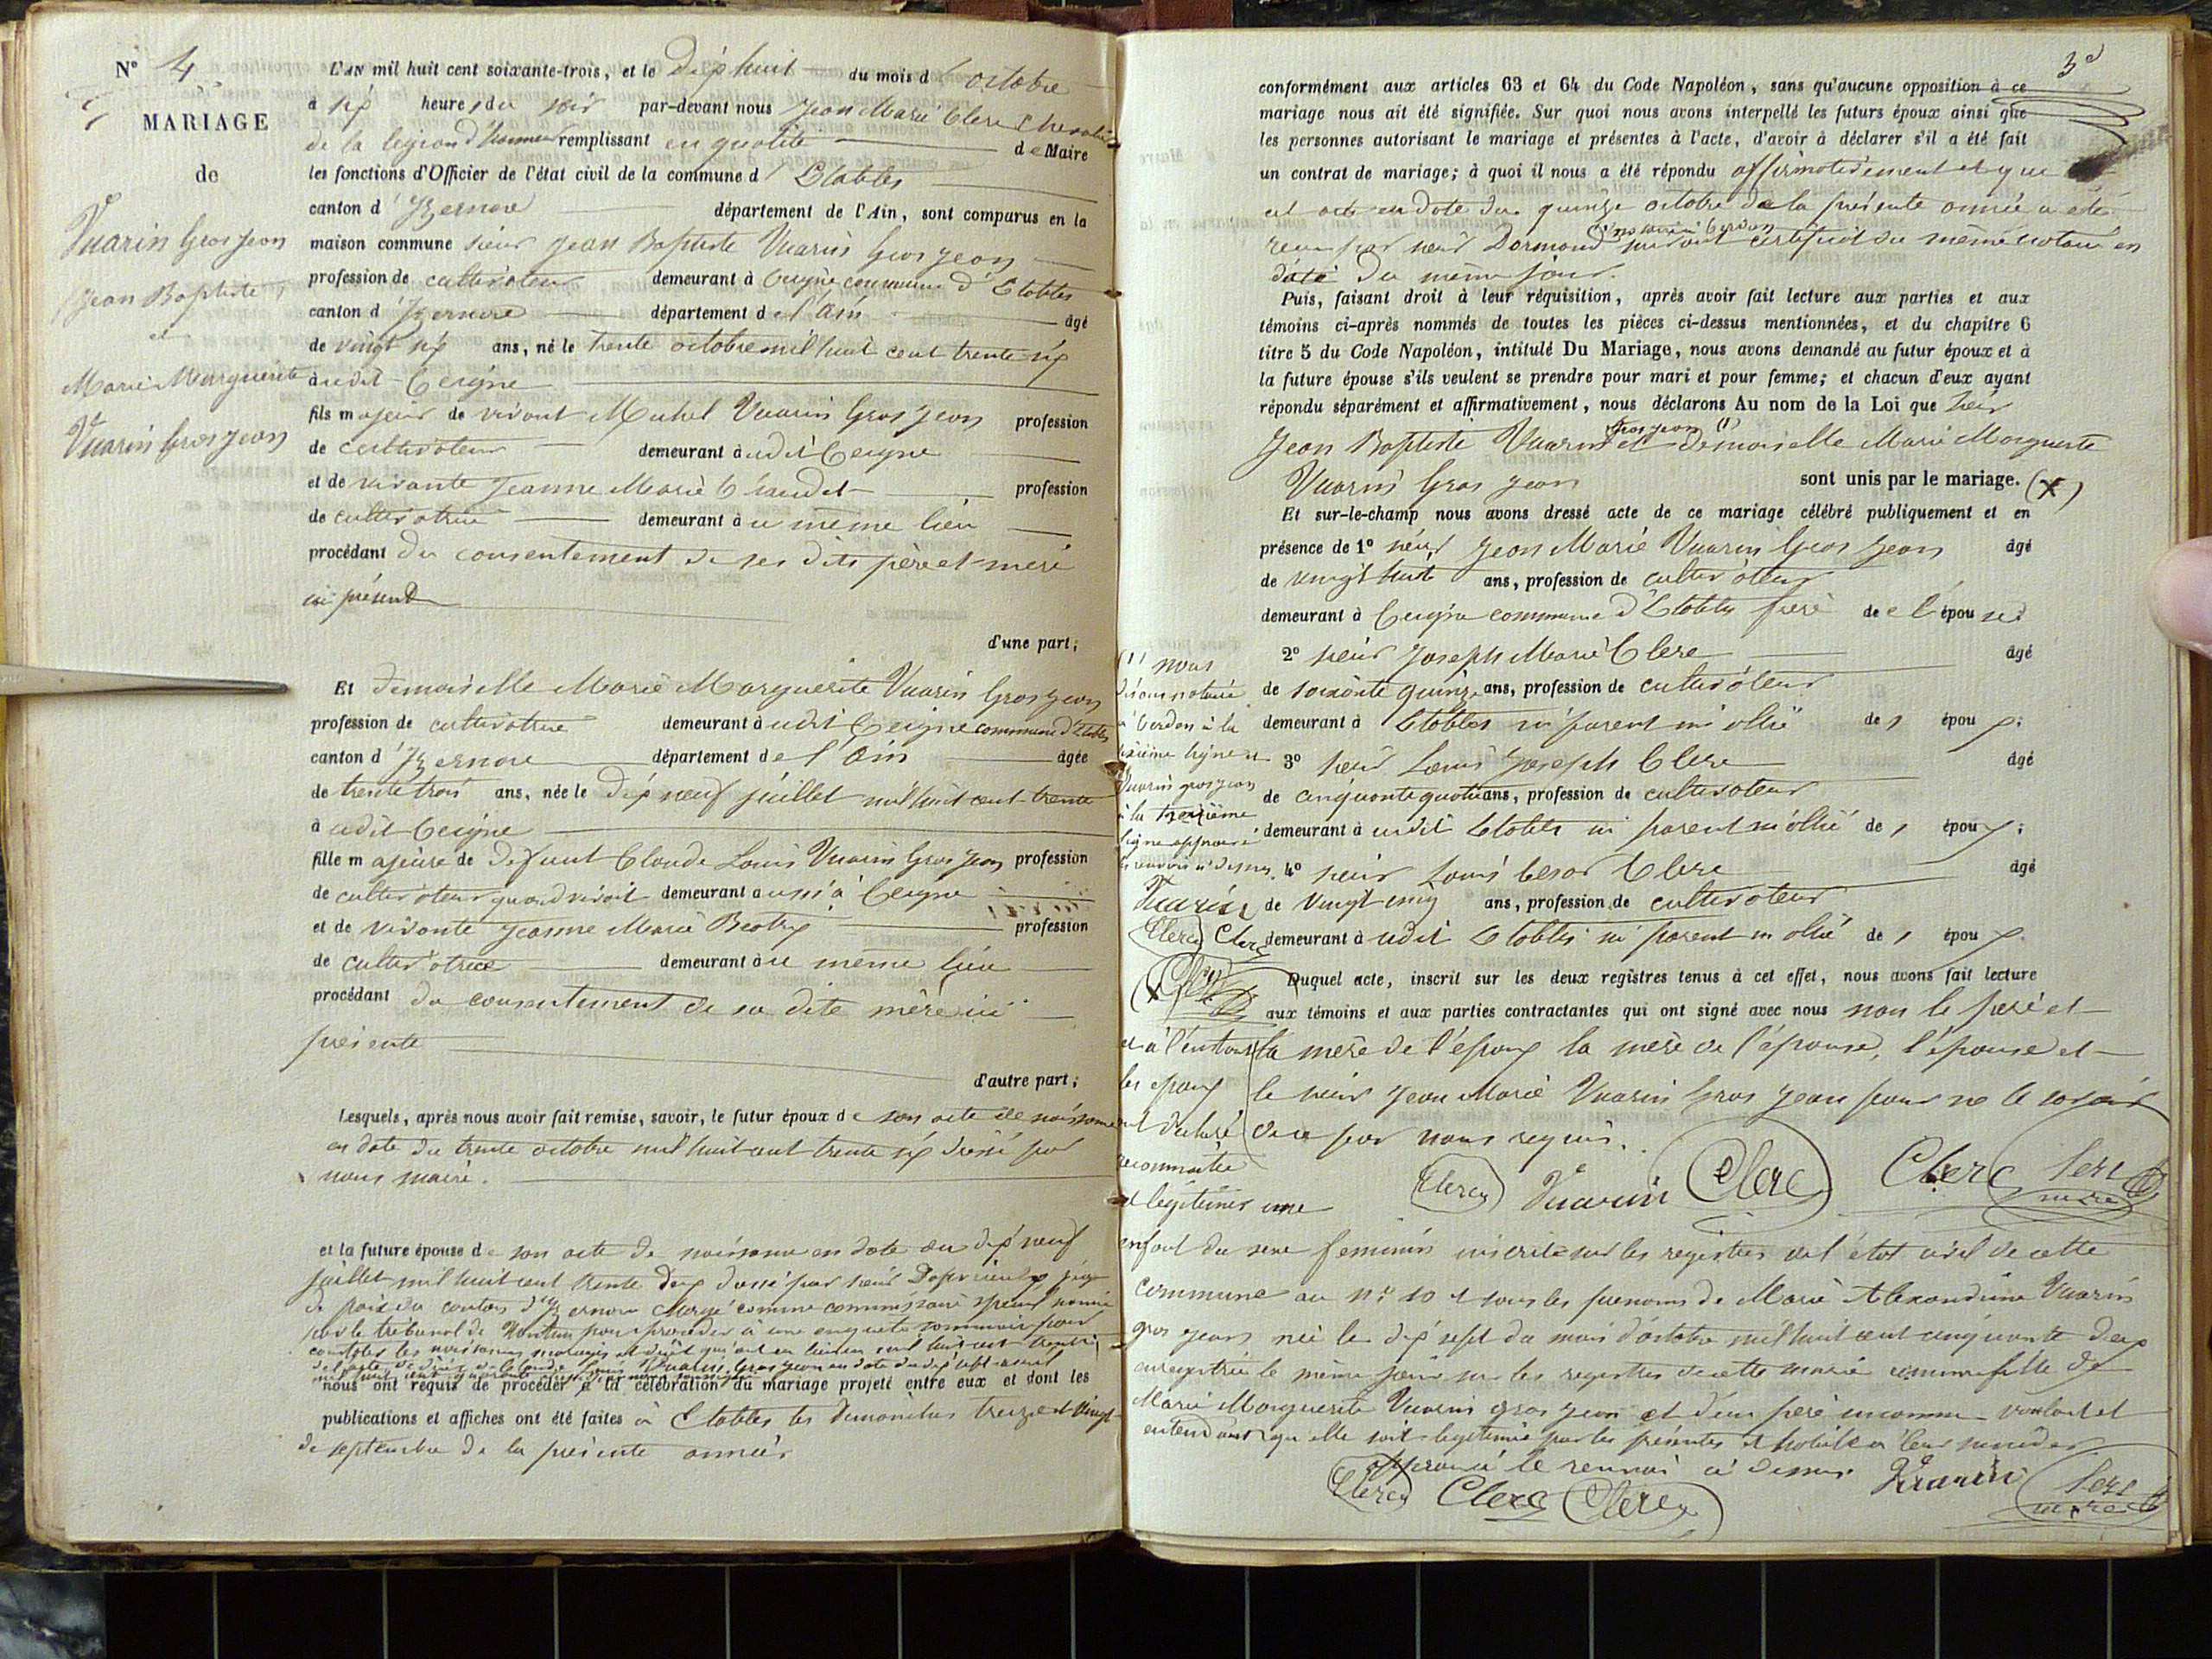 N° 4
MARIAGE
de
Vuarin Gros Jean
Jean Baptiste
et
Marie Marguerite
Vuarin Gros Jean
L'AN mil huit cent soixante-trois, et le dix huit du mois d'octobre
à six heures du soir par-devant nous Jean Marie Clerc Chevalier
de la legion d'honneur remplissant en qualité de Maire
les fonctions d'Officier de l'état civil de la commune d'Etables
canton d'Izernore département de l'Ain, sont comparus en la
maison commune sieur Jean Baptiste Vuarin Gros Jean
profession de cultivateur demeurant à Ceigne commune d'Etables
canton d'Izernore département de l'Ain âgé
de vingt six ans, né le trente octobre mil huit cent trente six
audit Ceigne
fils majeur de vivant Michel Vuarin Gros Jean profession
de cultivateur demeurant audit Ceigne
et de vivante Jeanne Marie profession
de cultivatrice demeurant au même lieu
procédant du consentement de ses dits père et mère
ici présents
d'une part;
Et demoiselle Marie Marguerite Vuarin Gros Jean
profession de cultivatrice demeurant audit Ceigne commune d'Etables
canton d'Izernore département de l'Ain âgée
de trente trois ans, née le dix neuf juillet mil huit cent trente
audit Ceigne
fille majeure de defunt Claude Louis Vuarin Gros Jean profession
de cultivateur quand vivait demeurant aussi à Ceigne
et de vivante Jeanne Marie Beatrix profession
de cultivatrice demeurant au même lieu
procédant du consentement de sa dite mère ici
présente
d'autre part;
Lesquels, après nous avoir fait remise, savoir, le futur époux de son acte de naissance
en date du trente octobre mil huit cent trente six dressé par
nous maire.
et la future épouse de son acte de naissance en date du dix neuf
juillet mil huit cent trente dressé par sieur juge
de paix du canton d'Izernore comme commissaire nommé
par le tribunal de Nantua pour proceder à une enquete sommaire pour
constater les naissances mariages et décès qui ont eu lieu en mil huit cent trente,
de l'acte de décès de Claude Louis Vuarin Gros Jean en date du dix sept
mil huit cent quarante
nous ont requis de procéder à la célébration du mariage projeté entre eux et dont les
publications et affiches ont été faites à Etables les dimanches treize et vingt
de septembre de la présente année
conformément aux articles 63 et 64 du Code Napoléon, sans qu'aucune opposition à ce
mariage nous ait été signifiée. Sur quoi nous avons interpellé les futurs époux ainsi que
les personnes autorisant le mariage et présentes à l'acte, d'avoir à déclarer s'il a été fait
un contrat de mariage; à quoi il nous a été répondu affirmativement et que
cet acte en date du quinze octobre de la présente année a été
reçu par sieur Dormand notaire à Cerdon suivant certificat du même notaire en
date du même jour.
Puis, faisant droit à leur réquisition, après avoir fait lecture aux parties et aux
témoins ci-après nommés de toutes les pièces ci-dessus mentionnées, et du chapitre 6
titre 5 du Code Napoléon, intitulé Du Mariage, nous avons demandé au futur époux et à
la future épouse s'ils veulent se prendre pour mari et pour femme; et chacun d'eux ayant
répondu séparément et affirmativement, nous déclarons Au nom de la Loi que sieur
Jean Baptiste Vuarin gros jean (1) et demoiselle Marie Marguerite
Vuarin Gros Jean sont unis par le mariage. (x)
Et sur-le-champ nous avons dressé acte de ce mariage célébré publiquement et en
présence de 1° sieur Jean Marie Vuarin Gros Jean âgé
de vingt huit ans, profession de cultivateur
demeurant à Ceigne commune d'Etables frère de l'épouse
2° sieur Joseph Marie Clerc âgé
de soixante quinze ans, profession de cultivateur
demeurant à Etables ni parent ni allié des époux;
3° sieur Louis Joseph Clerc âgé
de cinquante quatre ans, profession de cultivateur
demeurant audit Etables ni parent ni allié des époux;
4° sieur Louis Cesar Clerc âgé
de vingt cinq ans, profession de cultivateur
demeurant audit Etables ni parent ni allié des époux.
Duquel acte, inscrit sur les deux registres tenus à cet effet, nous avons fait lecture
aux témoins et aux parties contractantes qui ont signé avec nous non le père et
la mère de l'époux la mère de l'épouse, l'épouse et
le sieur Jean Marie Vuarin Gros Jean pour ne le savoir
de ce par nous requis.
Clerc Vuarin Clerc Clerc Clerc
maire
(1) nous
disons notaire
à Cerdon à la
sixième ligne et
Vuarin gros jean
à la treizième
ligne approuvé
les renvois ci dessus.
Vuarin
Clerc Clerc
Clerc
x
et à l'instant
les époux
ont declaré
reconnaitre
et legitimer une
enfant du sexe feminin inscrite sur les registres de l'état civil de cette
commune au n° 10 sous les prenoms de Marie Alexandrine Vuarin
gros jean, née le dix sept du mois d'octobre mil huit cent cinquante deux
enregistrée le même jour sur les registres de cette mairie comme fille de
Marie Marguerite Vuarin gros jean et d'un père inconnu voulant et
entendant qu'elle soit legitimée par les présentes et habile à leur succéder.
Approuvé le renvoi ci dessus. Vuarin Clerc
Clerc Clerc Clerc maire